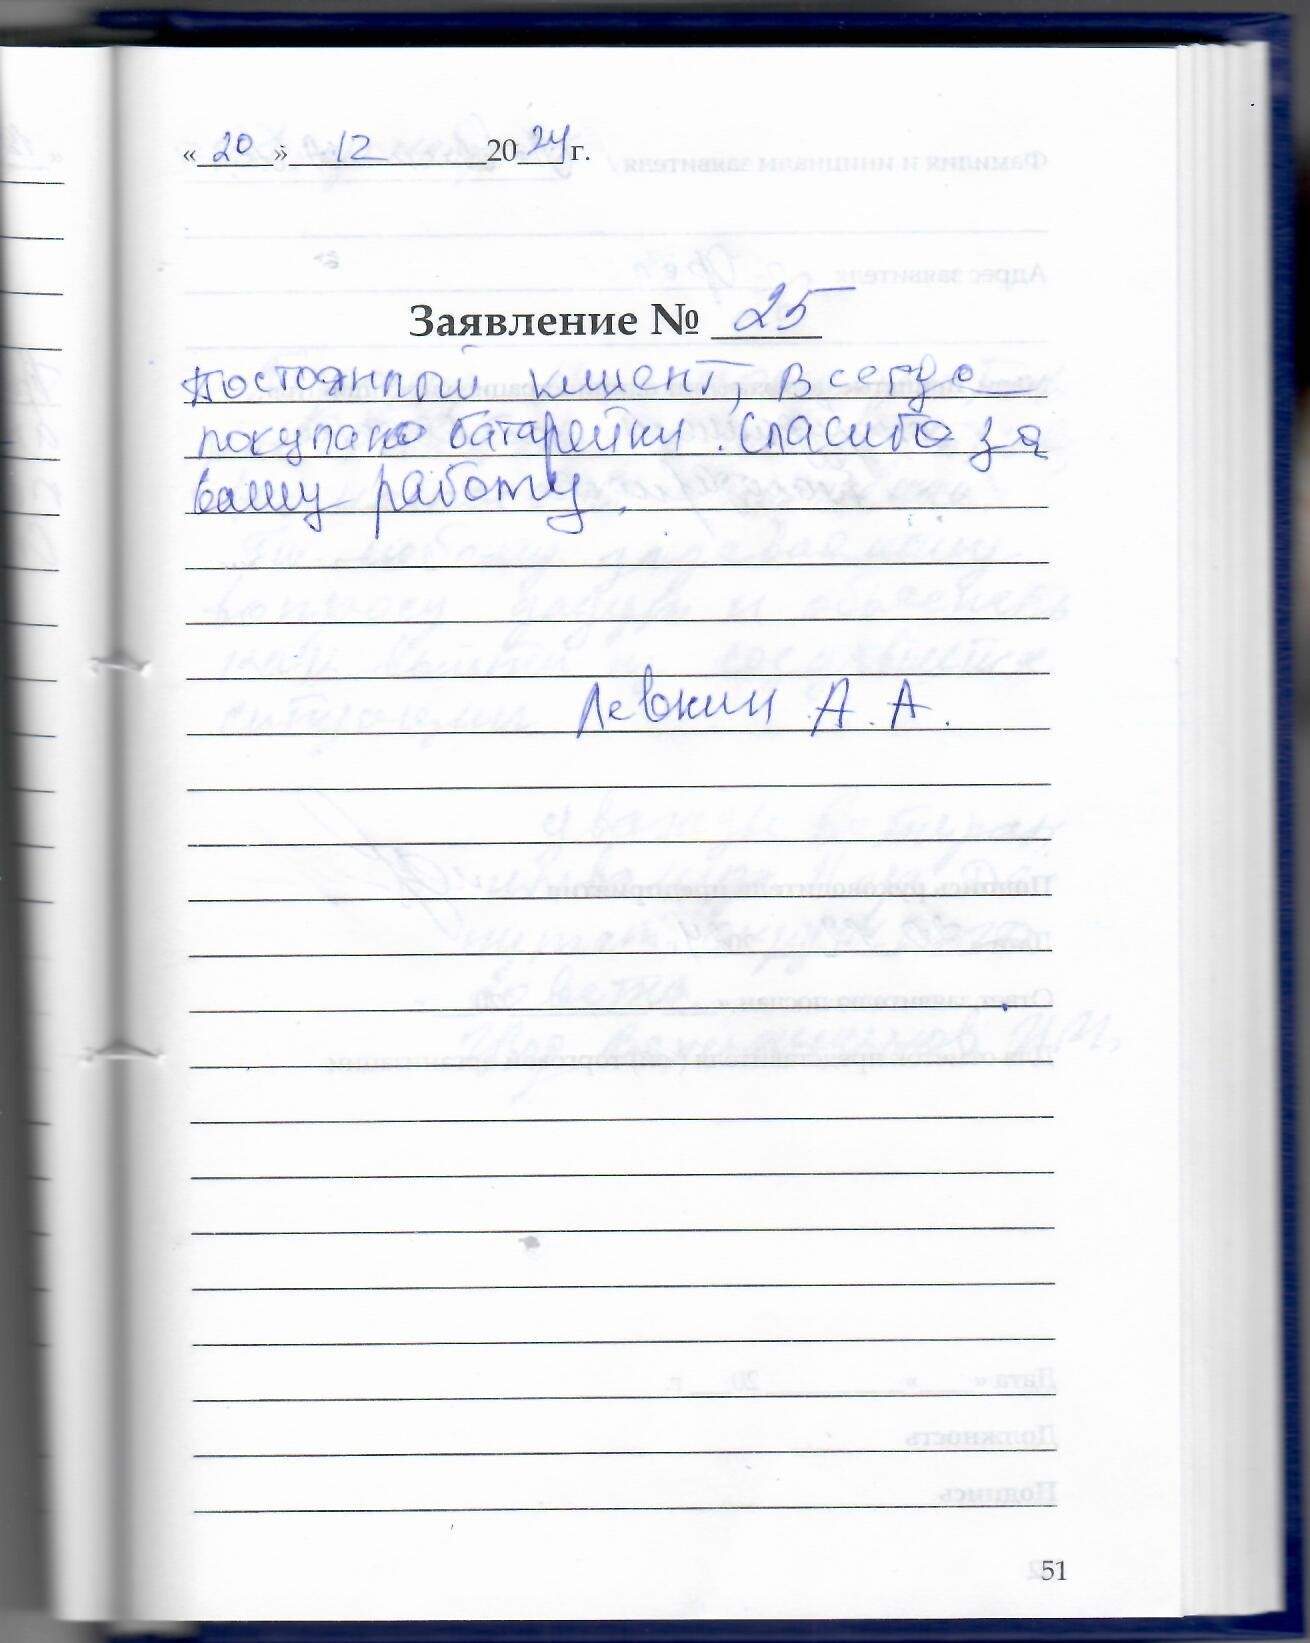 «20» 12 2024 г.
Заявление № 25
Постоянный клиент, всегда
покупаю батарейки. Спасибо за
вашу работу.
Левкин А. А.
51